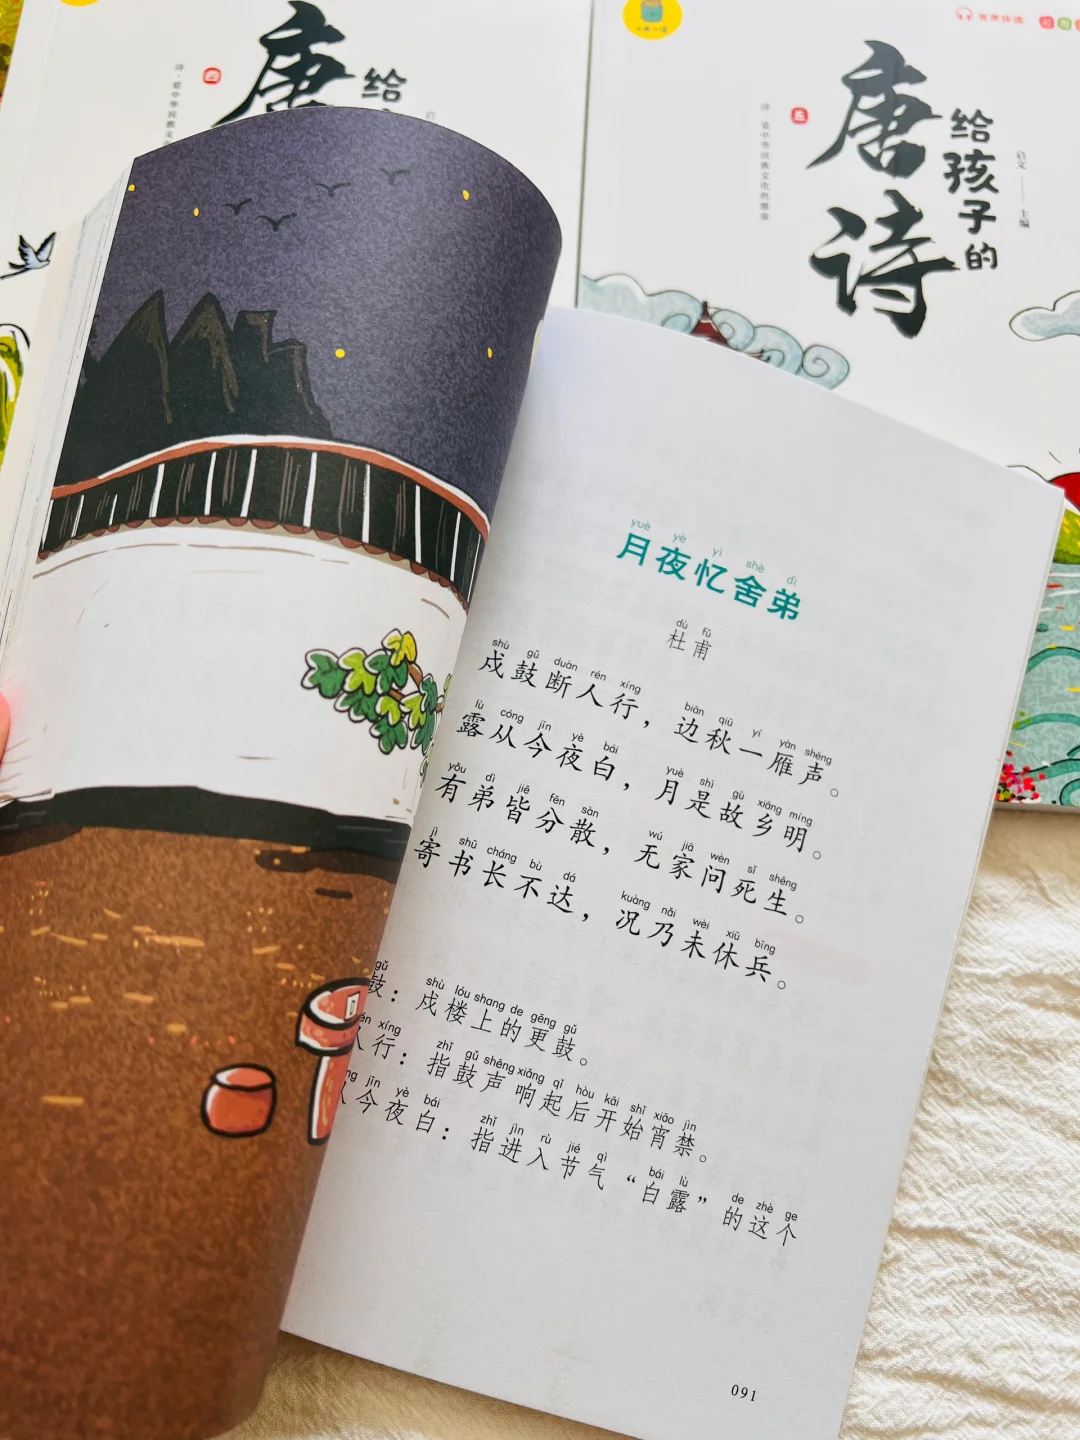 唐
给
唐诗
给孩子的
启文 主编
有声伴读
yuè yè yì shè dì
月夜忆舍弟
dù fǔ
杜甫
shù gǔ duàn rén xíng biān qiū yí yàn shēng
戍鼓断人行，边秋一雁声。
lù cóng jīn yè bái yuè shì gù xiāng míng
露从今夜白，月是故乡明。
yǒu dì jiē fēn sàn wú jiā wèn sǐ shēng
有弟皆分散，无家问死生。
jì shū cháng bù dá kuàng nǎi wèi xiū bīng
寄书长不达，况乃未休兵。
gǔ shù lóu shang de gēng gǔ
鼓：戍楼上的更鼓。
rén xíng zhǐ gǔ shēng xiǎng qǐ hòu kāi shǐ xiāo jìn
人行：指鼓声响起后开始宵禁。
jīn yè bái zhǐ jìn rù jié qì bái lù de zhè ge
今夜白：指进入节气“白露”的这个
091